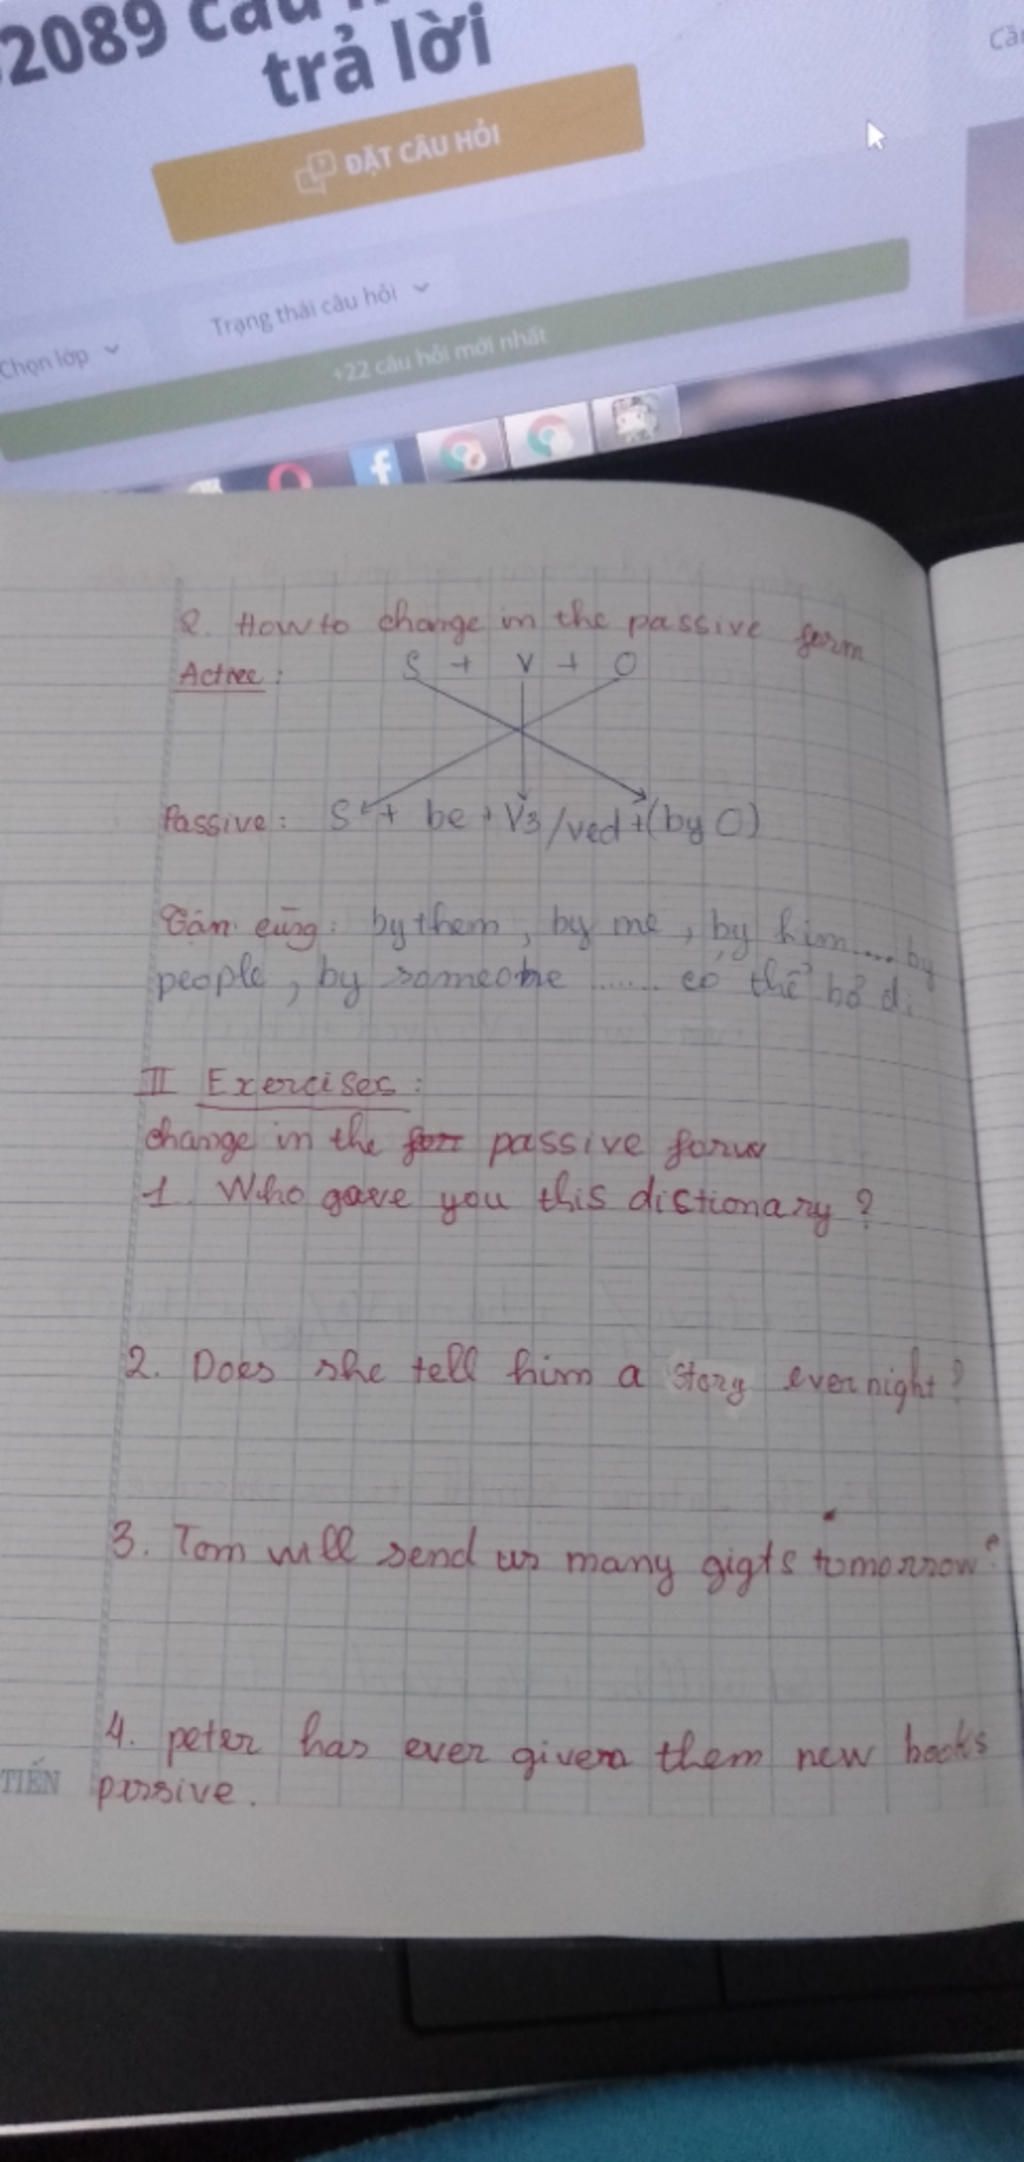 2089 câu
trả lời
ĐẶT CÂU HỎI
Trạng thái câu hỏi
Chọn lớp
+22 câu hỏi mới nhất
f
2. How to change in the passive form
Active :
S + V + O
Passive : S + be + V3/ved + (by O)
by them , by me , by him .... by
people , by someone ....... có thể bỏ đi
II Exercises :
change in the passive form
1. Who gave you this distionary ?
2. Does she tell him a story ever night ?
3. Tom will send us many gigts tomorrow ?
4. peter has ever given them new books
passive .
TIẾN